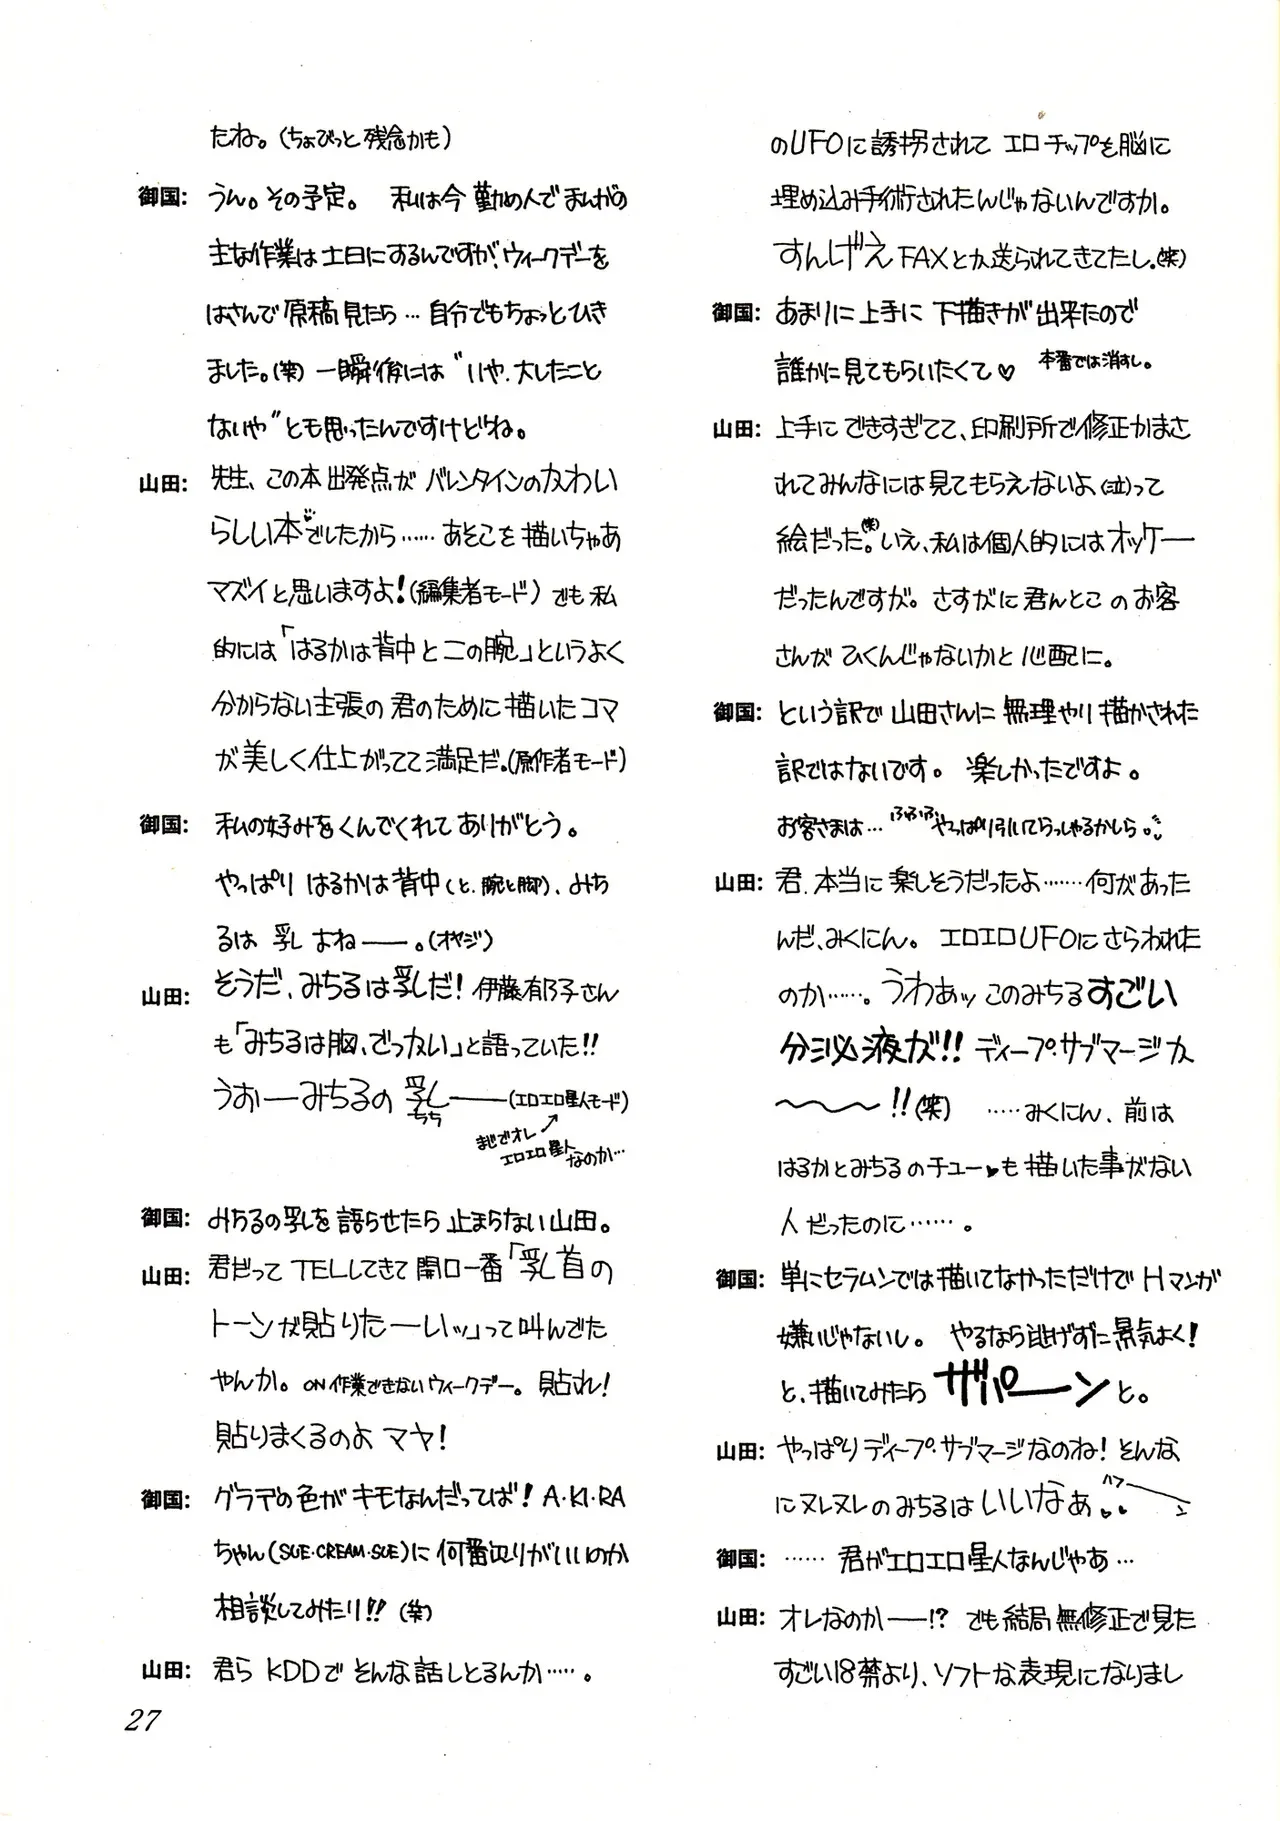 のUFOに誘拐されて エロチップを脳に
埋め込み手術されたんじゃないんですか。
すんげえFAXとか送られてきてたし。(笑)
御国: あまりに上手に下描きが出来たので
誰かに見てもらいたくて♡ 本番では消すし。
山田: 上手にできすぎてて、印刷所で修正かまさ
れてみんなには見てもらえないよ、(泣)って
絵だった。(笑)いえ、私は個人的にはオッケー
だったんですが。さすがに君んとこのお客
さんがひくんじゃないかと心配に。
御国: という訳で山田さんに無理やり描かされた
訳ではないです。 楽しかったですよ。
お客さまは… ふふふ やっぱり引いてらっしゃるかしら。
山田: 君、本当に楽しそうだったよ……何があった
んだ、みくにん。エロエロUFOにさらわれた
のか……。うわぁッこのみちるすごい
分泌液が!! ディープ・サブマージカ
〜〜〜!!(笑) ……みくにん、前は
はるかとみちるのチュー♥も描いた事がない
人だったのに……。
御国: 単にセラムンでは描いてなかっただけでHマンガ
嫌いじゃないし。 やるなら逃げずに景気よく!
と、描いてみたら ザパーンと。
山田: やっぱりディープ・サブマージなのね! そんな
にヌレヌレのみちるはいいなぁ ハアーン
御国: ……君がエロエロ星人なんじゃあ…
山田: オレなのかー!? でも結局無修正で見た
すごい18禁より、ソフトな表現になりまし
たね。(ちょびっと残念かも)
御国: うん。その予定。 私は今勤め人でまんがの
主な作業は土日にするんですが、ウィークデーを
はさんで原稿見たら…自分でもちょっとひき
ました。(笑)一瞬後には“いや、大したこと
ないや”とも思ったんですけどね。
山田: 先生、この本出発点がバレンタインのかわい
らしい本♡でしたから……あそこを描いちゃあ
マズイと思いますよ!(編集者モード)でも私
的には「はるかは背中と二の腕」というよく
分からない主張の君のために描いたコマ
が美しく仕上がってて満足だ。(原作者モード)
御国: 私の好みをくんでくれてありがとう。
やっぱりはるかは背中(と、腕と脚)、みち
るは 乳 よねー。(オヤジ)
山田: そうだ、みちるは乳だ!伊藤有子さん
も「みちるは胸、でっかい」と語っていた!!
うおーみちるの乳ー(エロエロ星人モード)
ちち
まじでオレ
エロエロ星人
なのか…
御国: みちるの乳を語らせたら止まらない山田。
山田: 君だってTELしてきて開口一番「乳首の
トーンが貼りたーいッ」って叫んでた
やんか。ON作業できないウィークデー。貼れ!
貼りまくるのよ マヤ!
御国: グラデの色がキモなんだってば! A・KI・RA
ちゃん(SUE・CREAM・SUE)に何番辺りがいいのか
相談してみたり!! (笑)
山田: 君らKDDでそんな話しとるんか……。
27